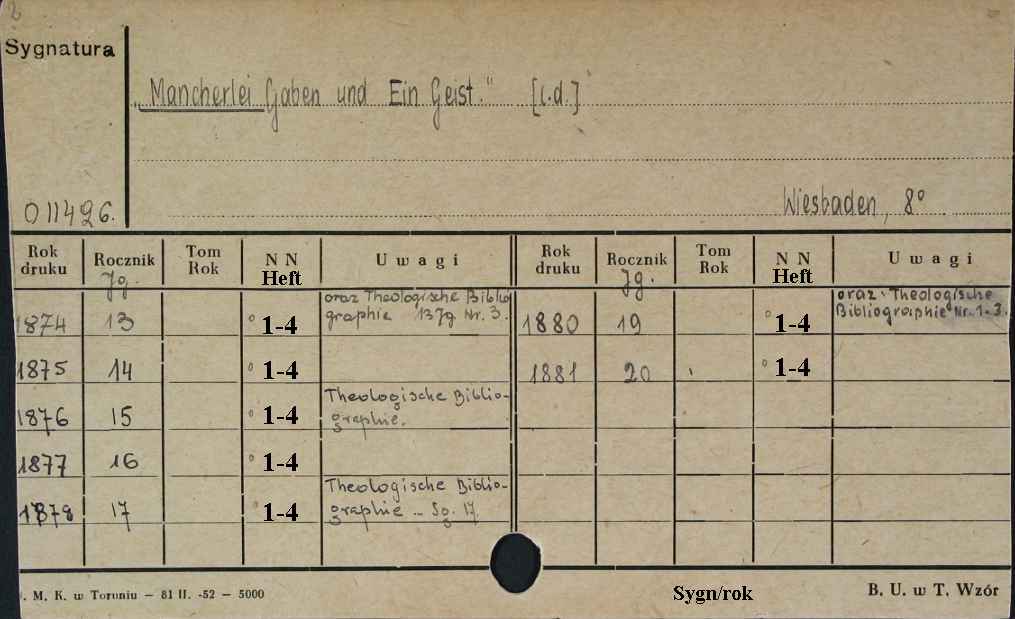 2
Sygnatura
„Mancherlei Gaben und Ein Geist.“ [i.d.]
011496.
Wiesbaden, 8°
Rok druku Rocznik Tom Rok N N U w a g i Rok druku Rocznik Tom Rok N N U w a g i
Jg. Heft Jg. Heft
1874 13 ° 1-4 oraz Theologische Biblio
graphie 13Jg Nr. 3.
1880 19 ° 1-4 oraz Theologische
Bibliographie Nr. 1-3.
1875 14 ° 1-4
1881 20 ° 1-4
1876 15 ° 1-4 Theologische Biblio-
graphie.
1877 16 ° 1-4
17 ° 1-4 Theologische Biblio-
graphie 17.
. M. K. w Toruniu – 81 II. -52 – 5000
Sygn/rok
B. U. w T. Wzór